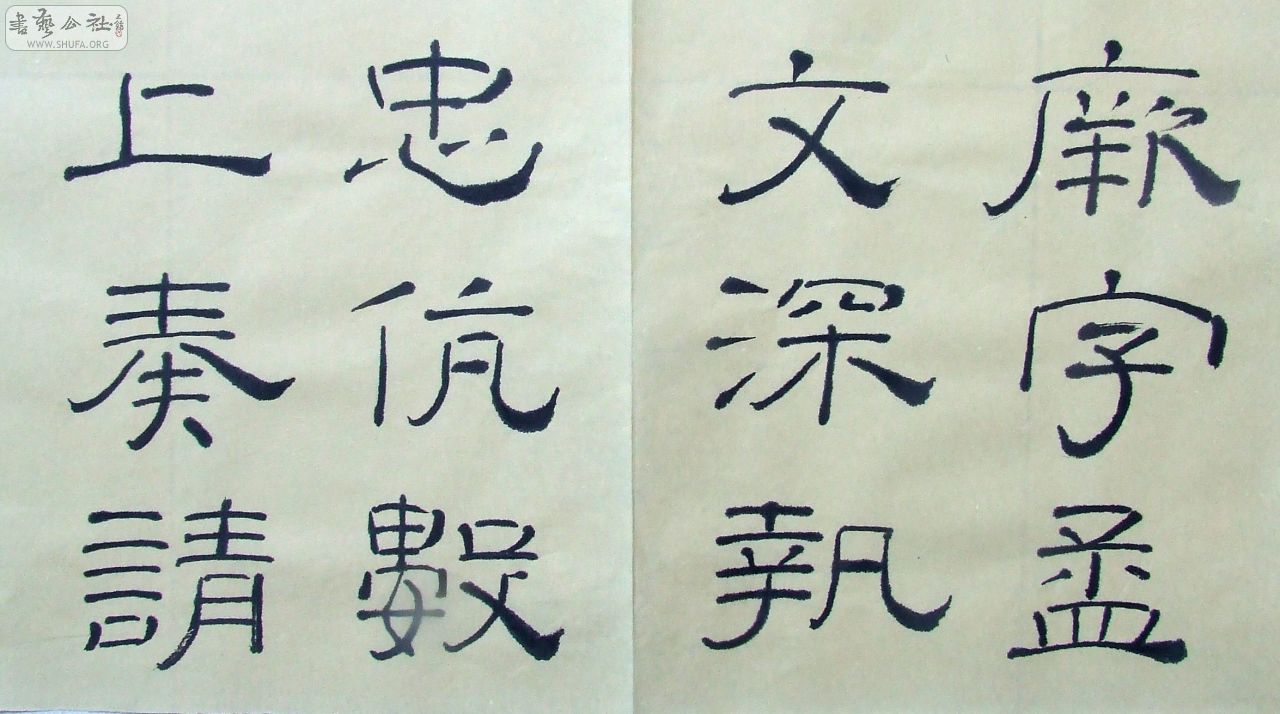 厥字孟
文深執
忠伉數
上奏請
書藝公社
WWW.SHUFA.ORG